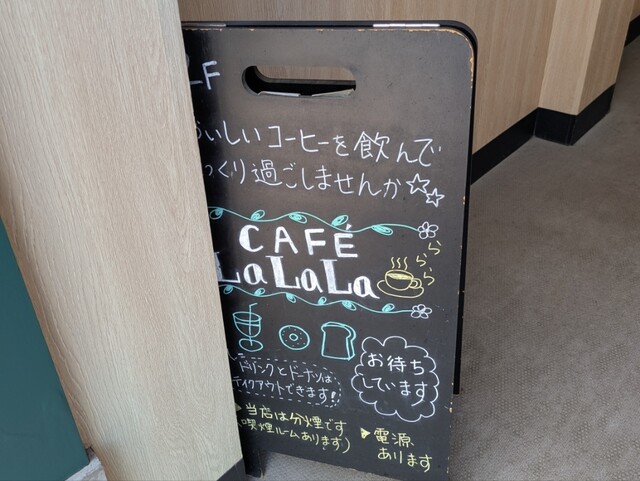 LF
おいしいコーヒーを飲んで
っくり過ごしませんか☆☆
CAFÉ
LaLaLa
ららら
ドリンクとドーナツは
テイクアウトできます!
お待ち
しています
当店は分煙です
(喫煙ルームあります)
電源
あります